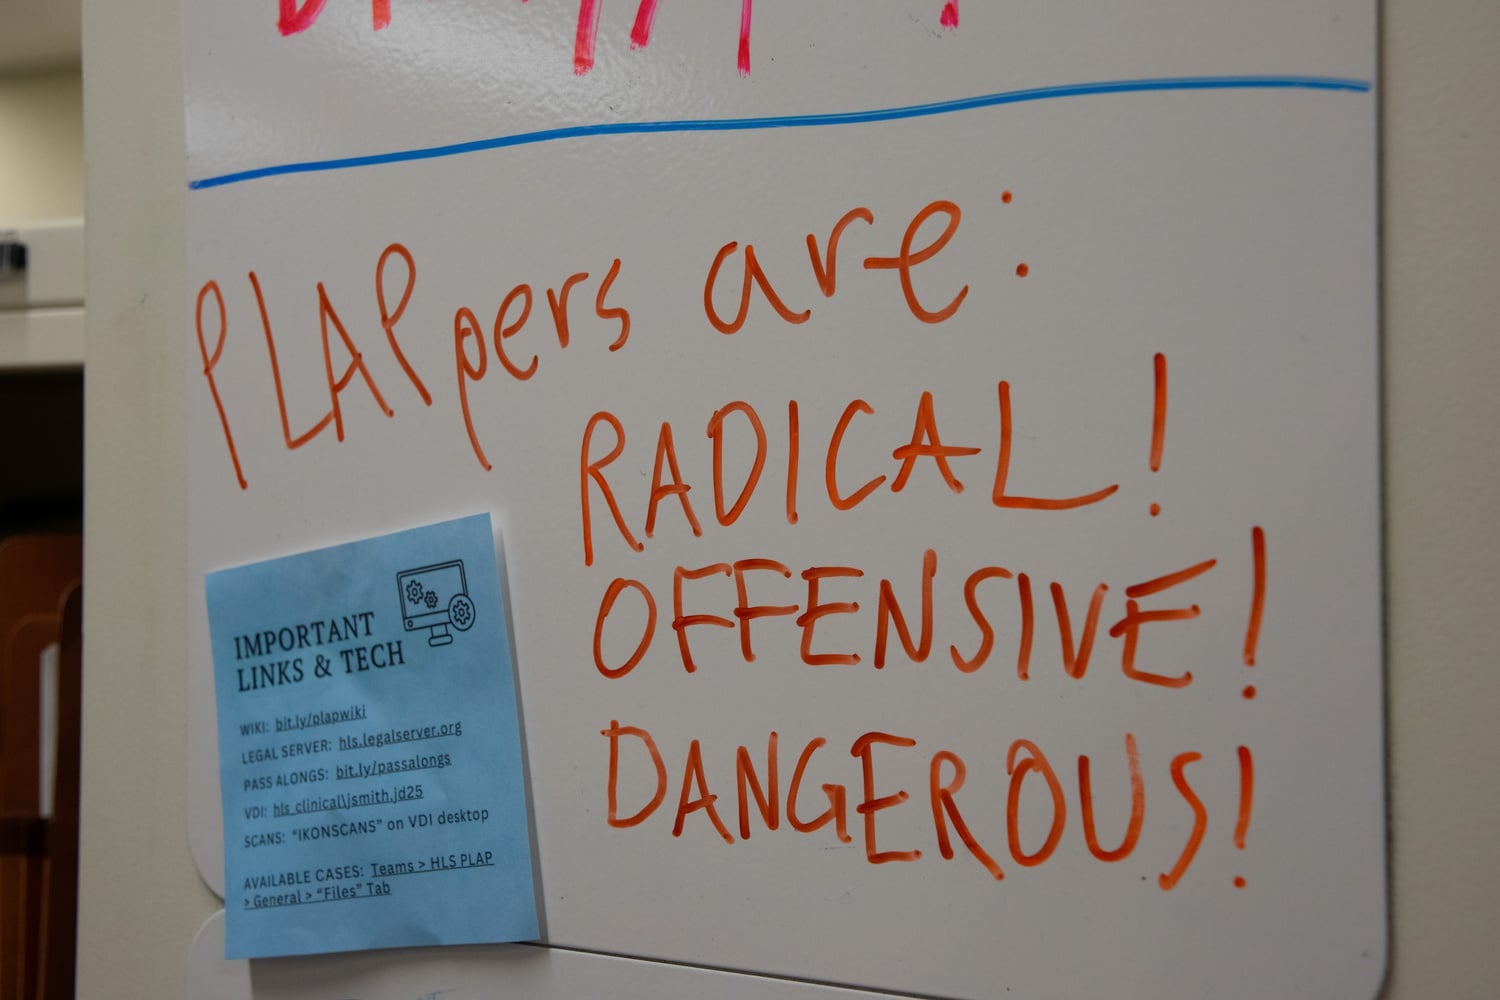 PLAPpers are:
RADICAL!
OFFENSIVE!
DANGEROUS!
IMPORTANT
LINKS & TECH
WIKI: bit.ly/plapwiki
LEGAL SERVER: hls.legalserver.org
PASS ALONGS: bit.ly/passalongs
VDI: hls_clinical\jsmith.jd25
SCANS: “IKONSCANS” on VDI desktop
AVAILABLE CASES: Teams > HLS PLAP
> General > “Files” Tab